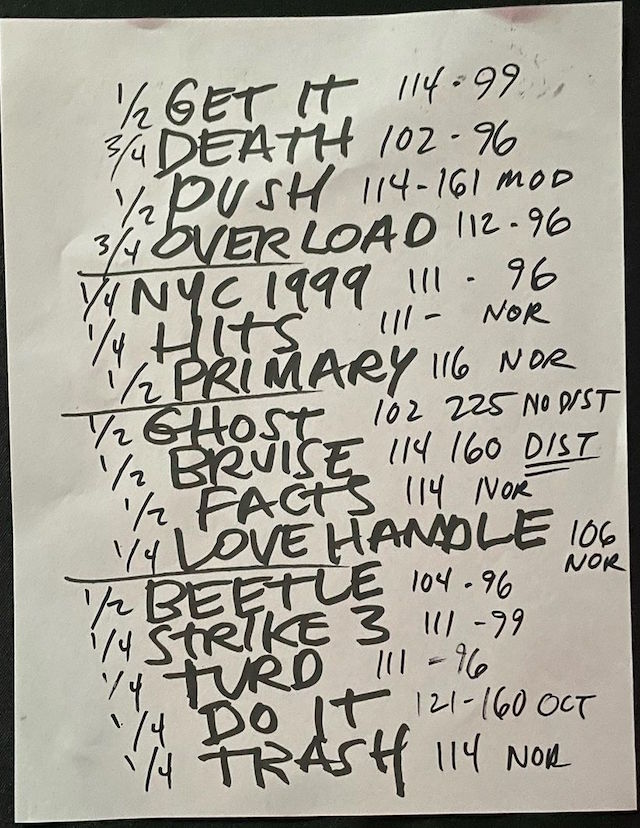 1/2 GET IT 114-99
3/4 DEATH 102-96
1/2 PUSH 114-161 MOD
3/4 OVERLOAD 112-96
1/4 NYC 1999 111 - 96
1/4 HITS 111- NOR
1/2 PRIMARY 116 NOR
1/2 GHOST 102 225 NO DIST
1/2 BRUISE 114 160 DIST
1/2 FACTS 114 NOR
1/4 LOVE HANDLE 106 NOR
1/2 BEETLE 104-96
1/4 STRIKE 3 111-99
1/4 TURD 111-96
1/4 DO IT 121-160 OCT
1/4 TRASH 114 NOR